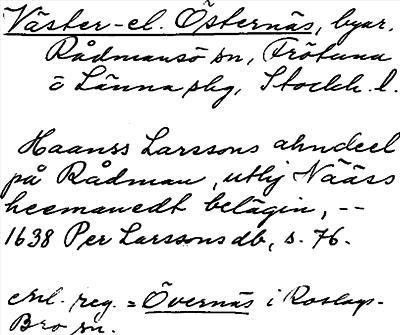 Väster- el. Östernäs, byar.
Rådmansö sn, Frötuna
o Länna skg, Stockh. l.
Haanss Larssons ahndeel
på Rådman, utþj Nääss
heemanedt belägin, --
1638 Per Larssons db, s. 76.
enl. reg. = Övernäs i Roslags-
Bro sn.